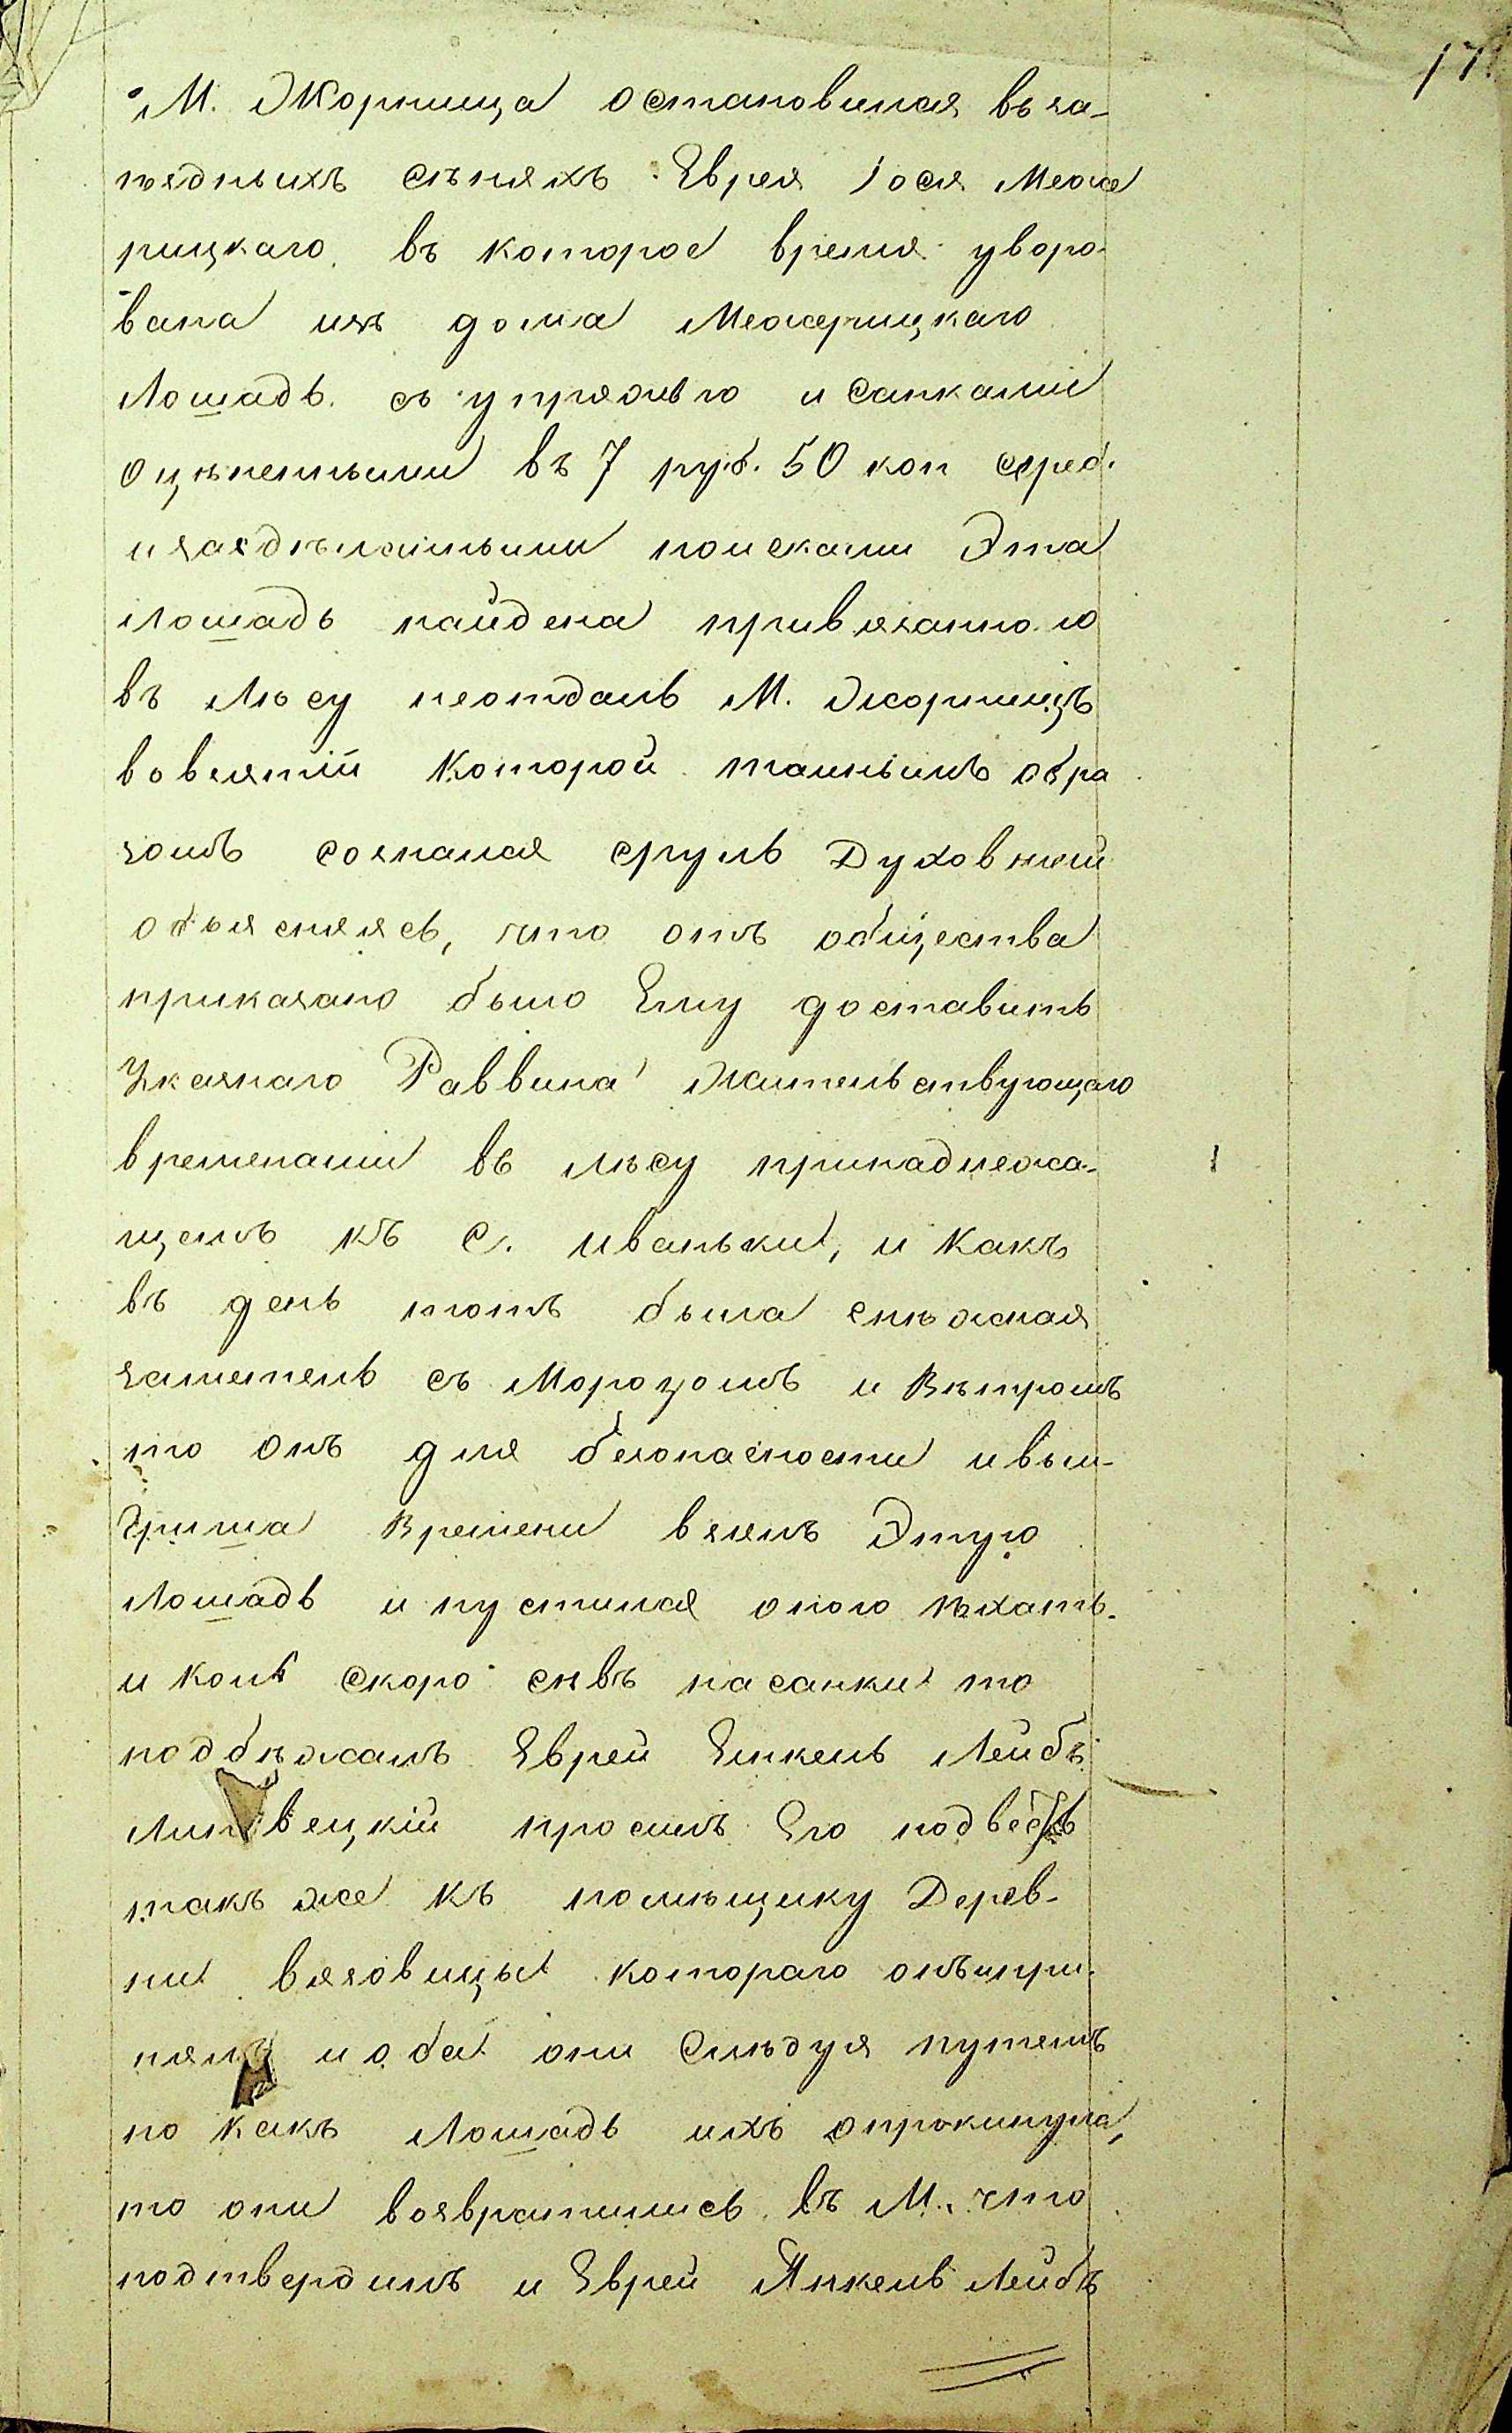 17.
М. Жорнища остановился въ за-
ѣздныхъ сѣняхъ Еврея Іося Меже
рицкаго, въ которое время уворо-
вана изъ дома Межерицкаго
Лошадь съ упряжью и санками
оцѣненными въ 7 руб. 50 коп сереб.
и заздѣланными поисками Эта
лошадь найдена привязанною
въ лѣсу неотдаль М. Жорнищъ
вовзятій которой таинымъ обра
зомъ сознался сруль Духовный
объясняясь, что отъ общества
приказано было Ему доставить
Указнаго Раввина Жительствующаго
временами въ лѣсу принадлежа-
щемъ къ С. иваньки, и какъ
въ день тотъ была снѣжная
заметель съ Морозомъ и Вѣтромъ
то онъ для безопасности и выи-
гриша Времени взялъ Эту
Лошадь и пустился оною ѣхать.
и коль скоро сѣвъ на санки то
подбѣжалъ Еврей Енкель Лейбъ
липовецкій просилъ Его подвѣсть
такъ же къ помѣщику Дерев-
ни вязовицы котораго онъ и при-
нялъ и оба они Слѣдуя путемъ
но какъ Лошадь ихъ опрокинула,
то они возвратились въ М. что
подтвердилъ и Еврей Янкель Лейбъ